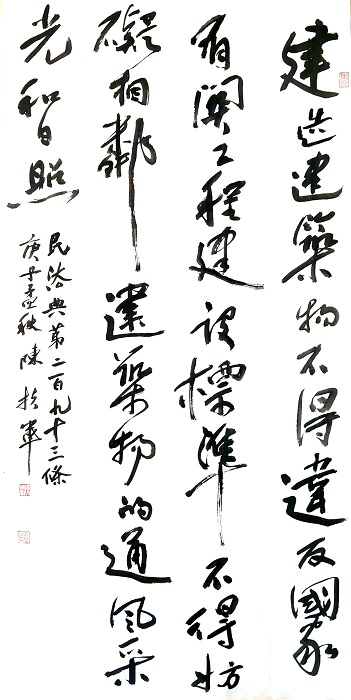 建造建築物不得違反國家
有關工程建設標準不得妨
礙相鄰建築物的通風采
光和日照
民法典第二百九十三條
庚子孟秋陳